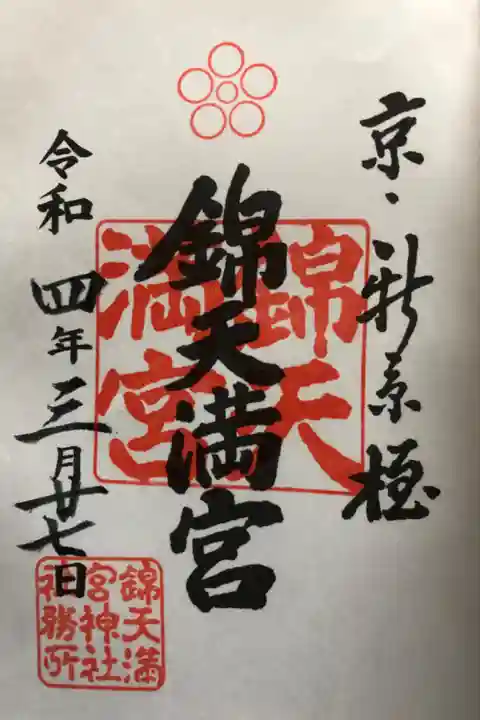 京・新京極
錦天満宮
錦天
満宮
令和四年三月廿七日
錦天満
宮神社
神務所